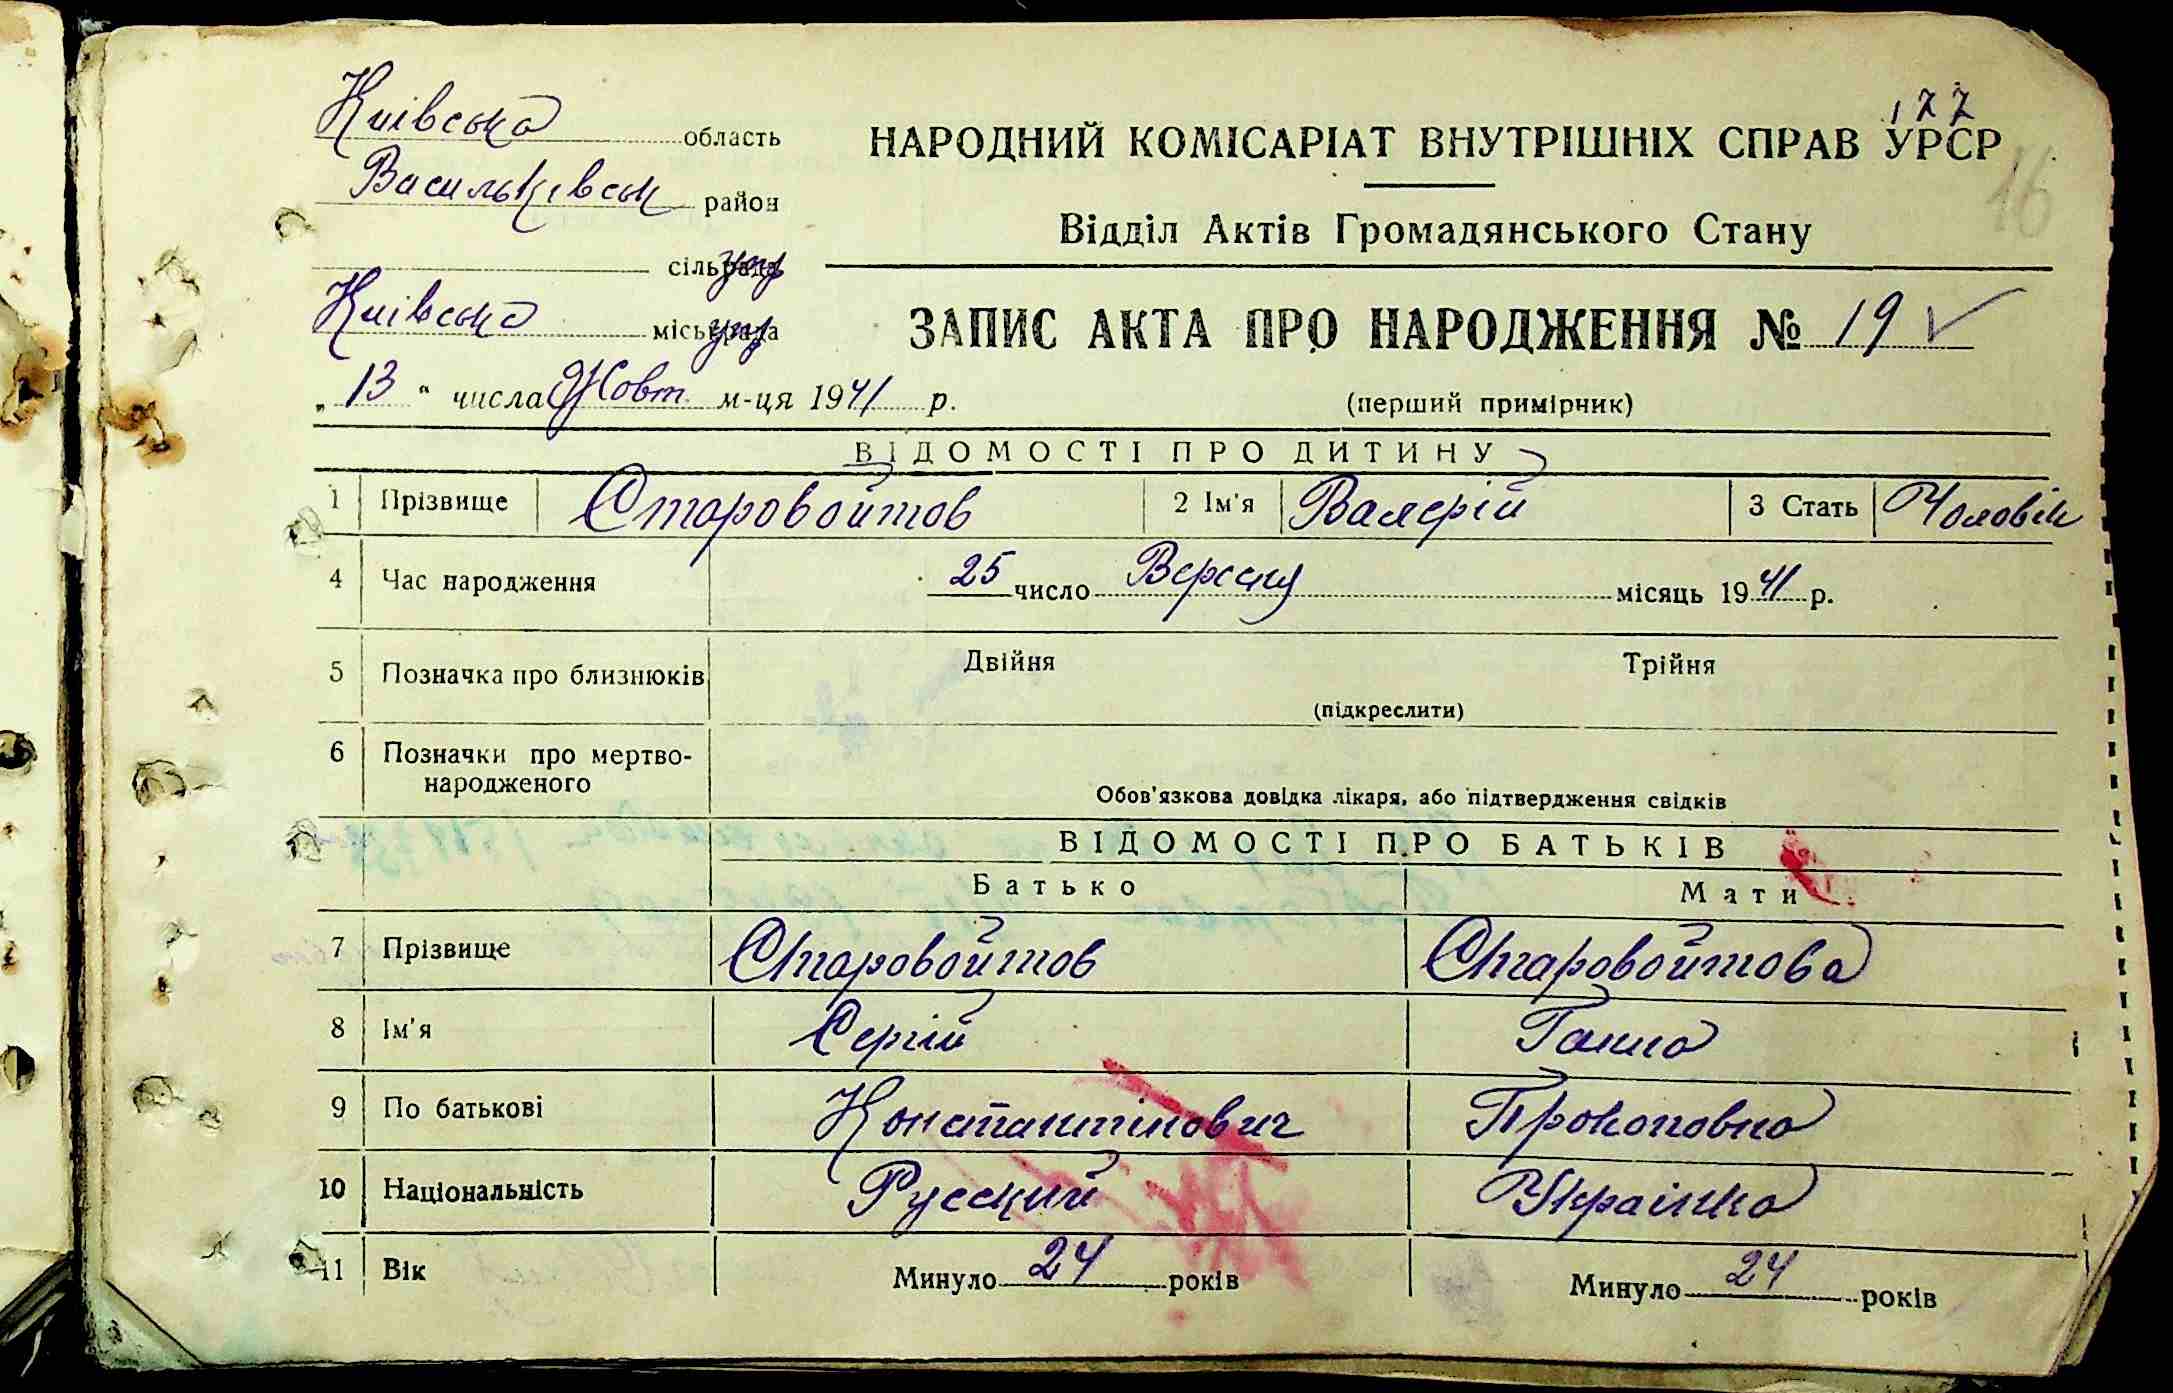 Київська область
177
НАРОДНИЙ КОМІСАРІАТ ВНУТРІШНІХ СПРАВ УРСР
16
Васильківськ район
Відділ Актів Громадянського Стану
сільрада
Київська міськрада
ЗАПИС АКТА ПРО НАРОДЖЕННЯ № 19
„13“ числа Жовт м-ця 1941 р.
(перший примірник)
ВІДОМОСТІ ПРО ДИТИНУ
1 Прізвище Старовойтов 2 Ім'я Валерій 3 Стать Чоловік
4 Час народження 25 число Вересня місяць 1941 р.
5 Позначка про близнюків Двійня Трійня
(підкреслити)
6 Позначки про мертво-
народженого
Обов'язкова довідка лікаря, або підтвердження свідків
ВІДОМОСТІ ПРО БАТЬКІВ
Батько Мати
7 Прізвище Старовойтов Старовойтова
8 Ім'я Сергій Ганна
9 По батькові Константінович Прокоповна
10 Національність Русский Украінка
11 Вік Минуло 24 років Минуло 24 років